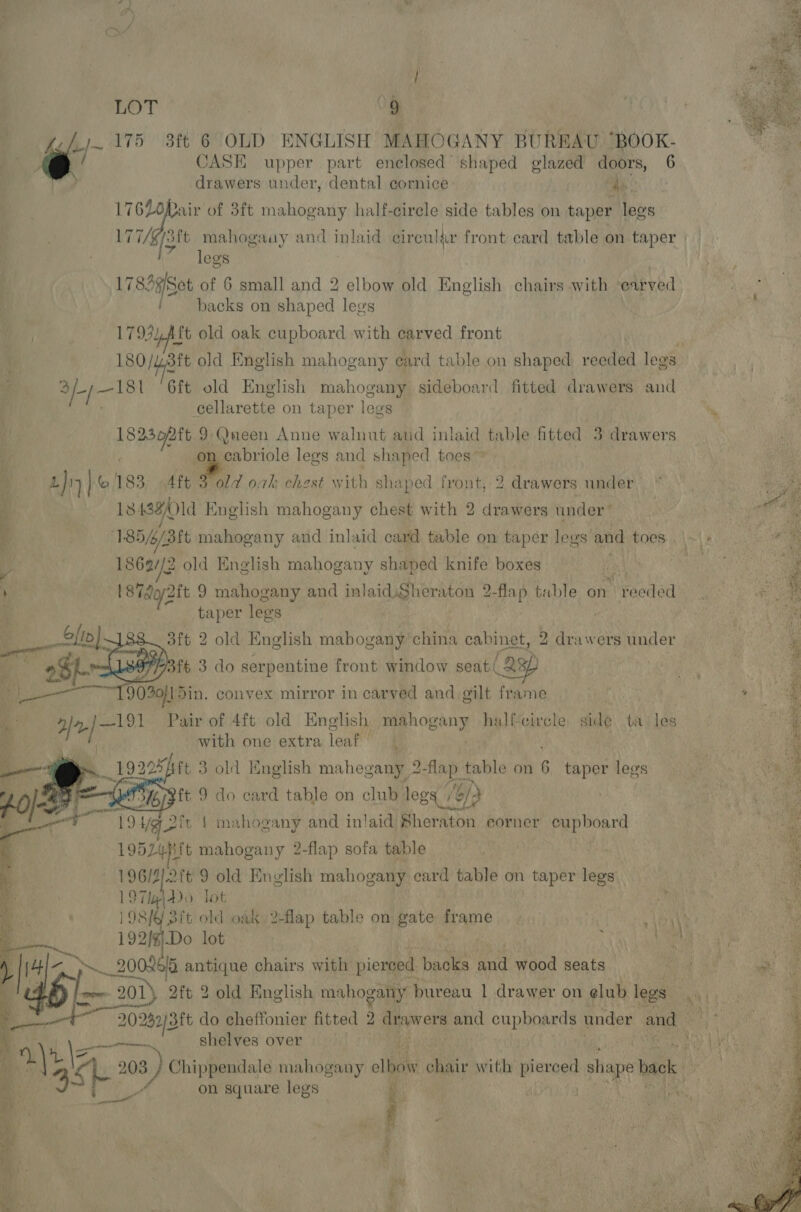 LOT 9
175 3ft 6 OLD ENGLISH MAHOGANY BUREAU BOOK-
CASE upper part enclosed shaped glazed doors, 6
drawers under, dental cornice
176 Pair of 3ft mahogany half-circle side tables on taper legs
177 3ft mahogany and inlaid circular front card table on taper
legs
178 Set of 6 small and 2 elbow old English chairs with carved
backs on shaped legs
179 4ft old oak cupboard with carved front
180 3ft old English mahogany card table on shaped reeded legs
181 6ft old English mahogany sideboard fitted drawers and
cellarette on taper legs
182 2ft 9 Queen Anne walnut and inlaid table fitted 3 drawers
on cabriole legs and shaped toes
183 4ft 3 old oak chest with shaped front, 2 drawers under
184 Old English mahogany chest with 2 drawers under
185 3ft mahogany and inlaid card table on taper legs and toes
186 2 old English mahogany shaped knife boxes
187 2ft 9 mahogany and inlaid Sheraton 2-flap table on reeded
taper legs
188 3ft 2 old English mahogany china cabinet, 2 drawers under
189 3ft 3 do serpentine front window seat
190 15in. convex mirror in carved and gilt frame
191 Pair of 4ft old English mahogany half-circle side tables
with one extra leaf
192 4ft 3 old English mahegany 2-flap table on 6 taper legs
3ft 9 do card table on club legs
194 2ft 1 mahogany and inlaid Sheraton corner cupboard
195 ft mahogany 2-flap sofa table
196 2ft 9 old English mahogany card table on taper legs
197 Do lot
198 3ft old oak 2-flap table on gate frame
192 Do lot
200 antique chairs with pierced backs and wood seats
201 2ft 2 old English mahogany bureau 1 drawer on club legs
202 3ft do cheffonier fitted 2 drawers and cupboards under and
shelves over
203 Chippendale mahogany elbow chair with pierced shape back
on square legs